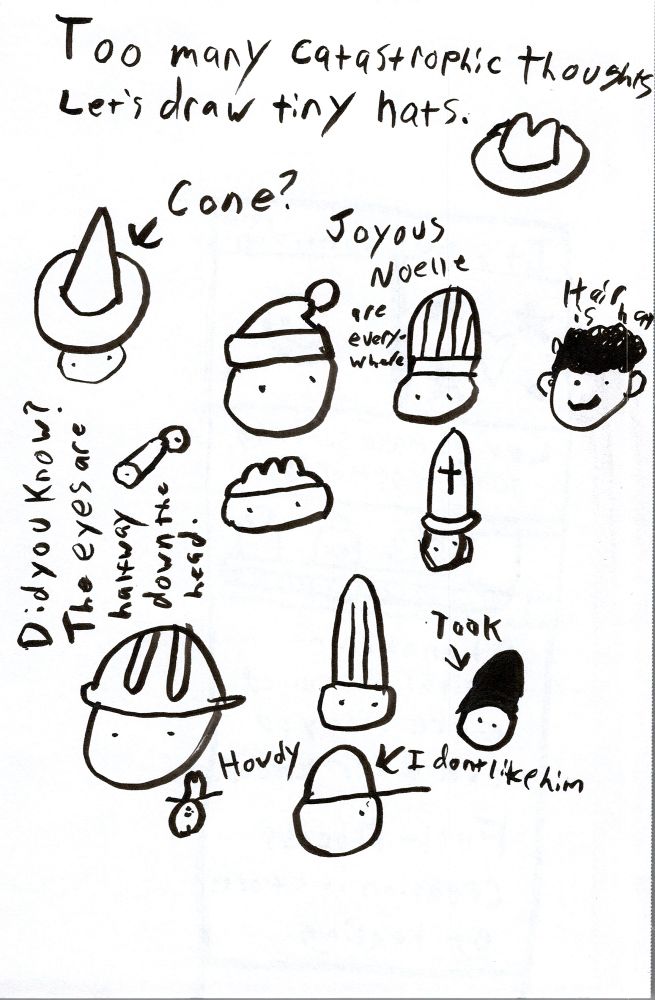 Too many catastrophic thoughts
Let's draw tiny hats.
Cone?
Joyous
Noelle
are
every-
where
Hair
is hat
Did you know?
The eyes are
halfway
down the
head.
Took
Howdy
I dont like him